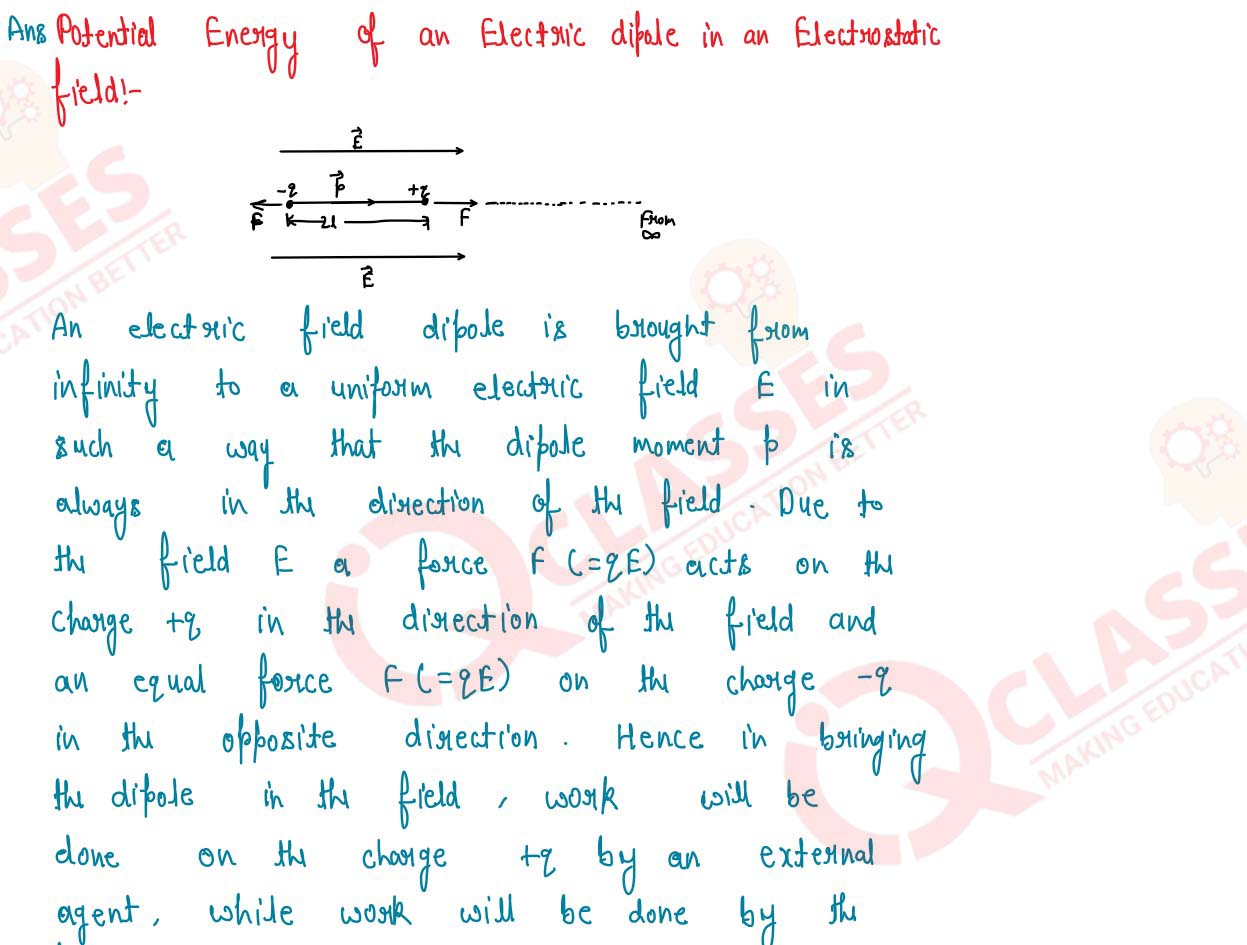 Ans Potential Energy of an Electric dipole in an Electrostatic
field:-
E
-q p +q
F 2l F From
∞
E
An electric field dipole is brought from
infinity to a uniform electric field E in
such a way that the dipole moment p is
always in the direction of the field. Due to
the field E a force F (=qE) acts on the
charge +q in the direction of the field and
an equal force F (=qE) on the charge -q
in the opposite direction. Hence in bringing
the dipole in the field, work will be
done on the charge +q by an external
agent, while work will be done by the
CLASSES
CATION BETTER
iQ CLASSES
MAKING EDUCATION BETTER
iQ CLASSE
MAKING EDUCATI